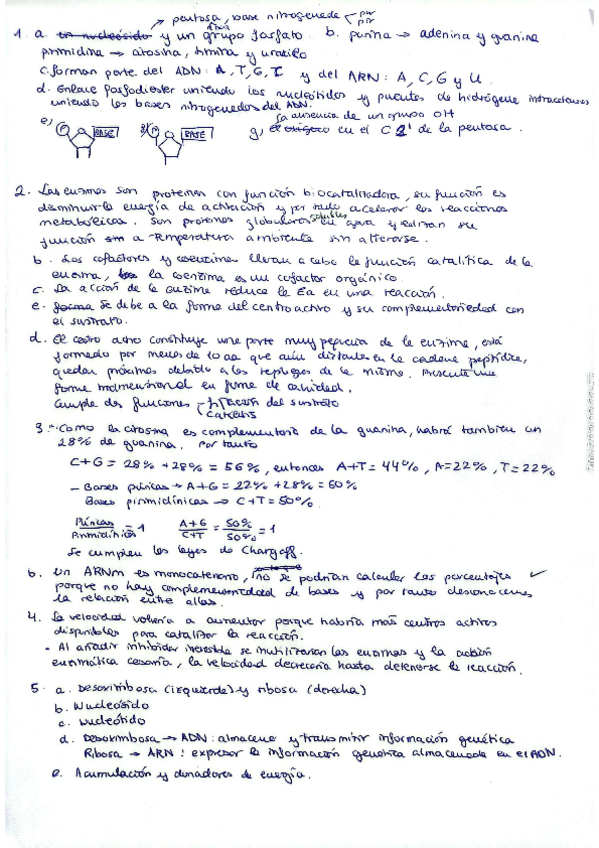 pentosa, base nitrogenada pur pir
1. a. un nucleósido y un grupo fosfato. b. purina → adenina y guanina
pirimidina → citosina, timina y uracilo
c. forman parte del ADN: A, T, G, C y del ARN: A, C, G y U.
d. Enlace fosfodiester uniendo los nucleótidos y puentes de hidrógeno intracatenarios
uniendo las bases nitrogenadas del ADN.
la ausencia de un grupo OH
e) P BASE P BASE g) el oxígeno en el C 2' de la pentosa.
2. Las enzimas son proteínas con función biocatalizadora, su función es
disminuir la energía de activación y por tanto acelerar las reacciones
metabólicas. Son proteínas globulares solubles en agua y realizan su
función a temperatura ambiente sin alterarse.
b. Los cofactores y coenzimas llevan a cabo la función catalítica de la
enzima, la coenzima es un cofactor orgánico
c. La acción de la enzima reduce la Ea en una reacción.
e. forma Se debe a la forma del centro activo y su complementariedad con
el sustrato.
d. El centro activo constituye una parte muy pequeña de la enzima, está
formado por menos de 10 aa que aún distantes en la cadena peptídica,
quedan próximos debido a los repliegues de la misma. Presenta una
forma tridimensional en forma de cavidad.
Cumple dos funciones fijación del sustrato
catálisis
3. Como la citosina es complementaria de la guanina, habrá también un
28% de guanina. Por tanto
C+G = 28% + 28% = 56%, entonces A+T = 44%, A=22%, T=22%
- Bases púricas → A+G = 22% + 28% = 50%
Bases pirimidínicas → C+T = 50%
Púricas/Pirimidínicas = 1 A+G/C+T = 50%/50% = 1
Se cumplen las leyes de Chargaff.
b. Un ARNm es monocatenario, no se podrían calcular los porcentajes
porque no hay complementariedad de bases y por tanto desconocemos
la relación entre ellas.
4. La velocidad volvería a aumentar porque habría más centros activos
disponibles para catalizar la reacción.
- Al añadir inhibidor irreversible se inutilizarían las enzimas y la acción
enzimática cesaría, la velocidad decrecería hasta detenerse la reacción.
5. a. Desoxirribosa (izquierda) y ribosa (derecha)
b. Nucleósido
c. Nucleótido
d. Desoxirribosa → ADN: almacena y transmitir información genética
Ribosa → ARN: expresar la información genética almacenada en el ADN.
e. Acumulación y donadores de energía.